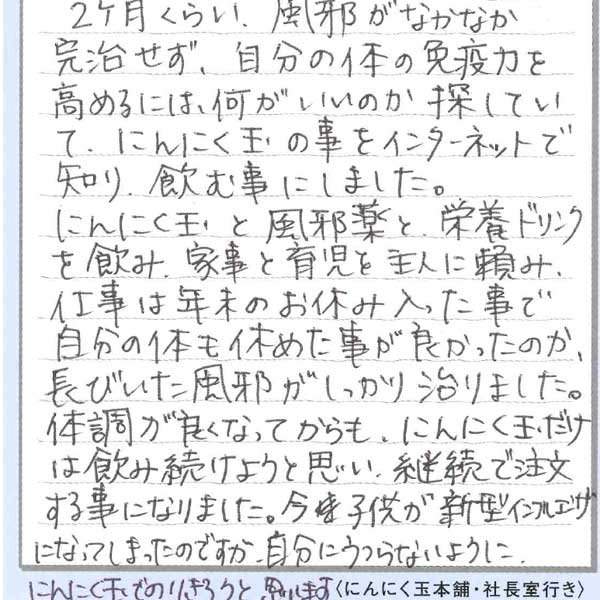 2ヶ月くらい、風邪がなかなか
完治せず、自分の体の免疫力を
高めるには、何がいいのか探してい
て、にんにく玉の事をインターネットで
知り、飲む事にしました。
にんにく玉と風邪薬と、栄養ドリンク
を飲み、家事と育児を主人に頼み、
仕事は年末のお休み入った事で
自分の体も休めた事が良かったのか、
長びいた風邪がしっかり治りました。
体調が良くなってからも、にんにく玉だけ
は飲み続けようと思い、継続で注文
する事になりました。今子供が新型インフルエンザ
になってしまったのですが、自分にうつらないように、
にんにく玉でのりきろうと思います〈にんにく玉本舗・社長室行き〉